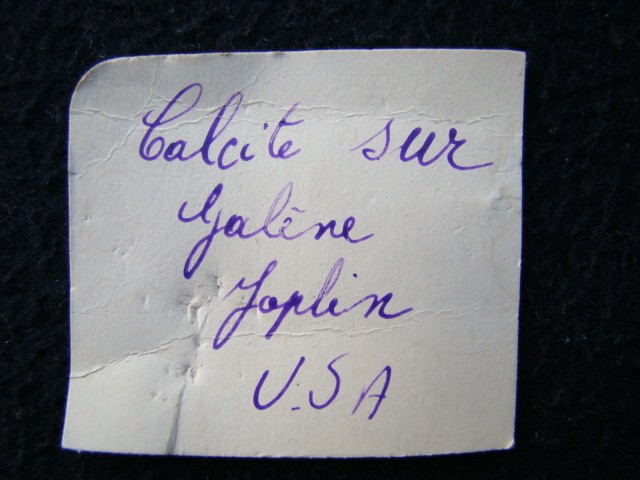 Calcite sur
Galène
Joplin
U.SA